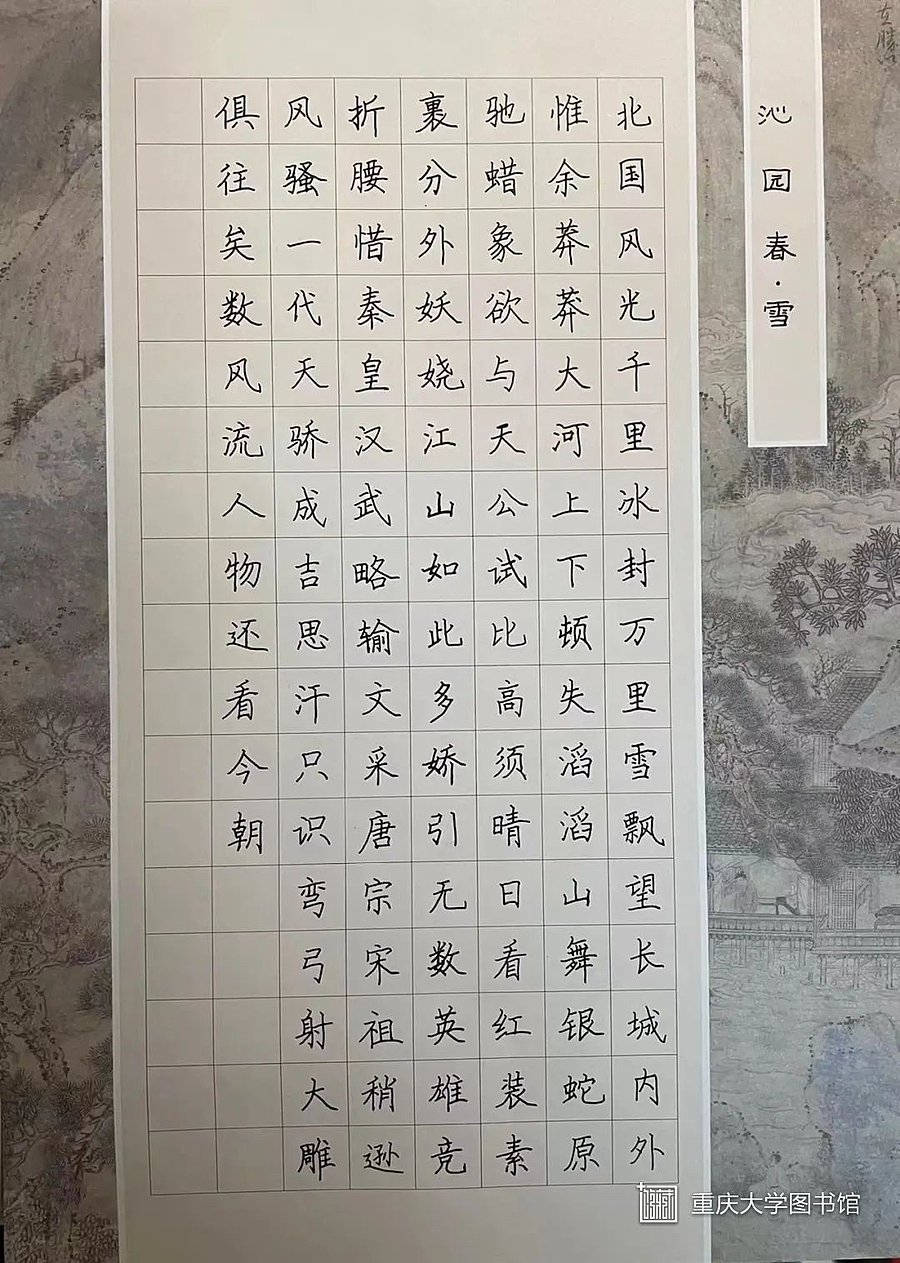 沁园春·雪
北国风光千里冰封万里雪飘望长城内外
惟余莽莽大河上下顿失滔滔山舞银蛇原
驰蜡象欲与天公试比高须晴日看红装素
裹分外妖娆江山如此多娇引无数英雄竞
折腰惜秦皇汉武略输文采唐宗宋祖稍逊
风骚一代天骄成吉思汗只识弯弓射大雕
俱往矣数风流人物还看今朝
重庆大学图书馆